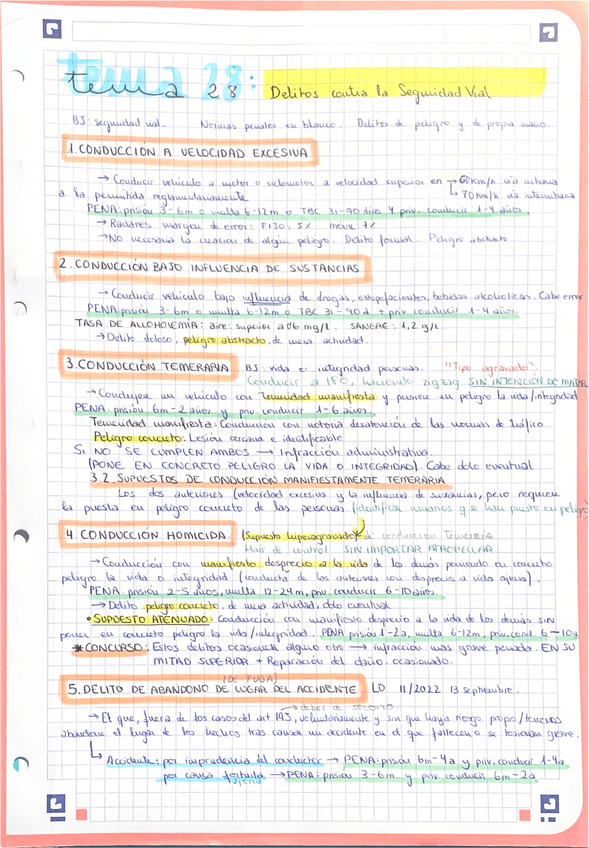 tema 28:
tema 28 Delitos contra la Seguridad Vial
BJ: seguridad vial. Normas penales en blanco. Delitos de peligro y de propia mano.
1. CONDUCCIÓN A VELOCIDAD EXCESIVA
→ Conducir vehículo a motor o ciclomotor a velocidad superior en → 60km/h vía urbana
a la permitida reglamentariamente ↳ 70km/h vía interurbana
PENA: prisión 3-6m o multa 6-12m o TBC 31-90 días y priv. conducir 1-4 años.
→ Radares margen de error: FIJO: 5% móvil: 7%
→ No necesaria la creación de algún peligro. Delito formal. Peligro abstracto.
2. CONDUCCIÓN BAJO INFLUENCIA DE SUSTANCIAS
→ Conducir vehículo bajo influencia de drogas, estupefacientes, bebidas alcohólicas. Cabe error
PENA: prisión 3-6m o multa 6-12m o TBC 31-90d + priv conducir 1-4 años.
TASA DE ALCOHOLEMIA: aire: superior a 0'6 mg/l. SANGRE: 1,2 g/l
→ Delito doloso, peligro abstracto, de mera actividad.
3. CONDUCCIÓN TEMERARIA BJ: vida e integridad personas. "Tipo agravado".
Conducir a 180, haciendo zigzag SIN INTENCIÓN DE MATAR
→ Condujere un vehículo con temeridad manifiesta y pusiere en peligro la vida/integridad
PENA: prisión 6m-2 años y priv. conducir 1-6 años.
Temeridad manifiesta: Conducción con notoria desatención de las normas de tráfico
Peligro concreto: Lesión cercana e identificable
SI NO SE CUMPLEN AMBOS → Infracción administrativa.
(PONE EN CONCRETO PELIGRO LA VIDA O INTEGRIDAD). Cabe dolo eventual
3.2. SUPUESTOS DE CONDUCCIÓN MANIFIESTAMENTE TEMERARIA
Los dos anteriores (velocidad excesiva y la influencia de sustancias, pero requiere
la puesta en peligro concreto de las personas (identificar usuarios q se han puesto en peligro)
4. CONDUCCIÓN HOMICIDA. (Supuesto hiperagravado) de conducción temeraria
SIN IMPORTAR ATROPELLAR.
→ Conducción con manifiesto desprecio a la vida de los demás poniendo en concreto
peligro la vida o integridad (conducta de los anteriores con desprecio a vida ajena).
PENA: prisión 2-5 años, multa 12-24m, priv. conducir 6-10 años.
→ Delito peligro concreto, de mera actividad, dolo eventual
• SUPUESTO ATENUADO: Conducción con manifiesto desprecio a la vida de los demás SIN
poner en concreto peligro la vida/integridad. PENA: prisión 1-2a, multa 6-12m, priv.cond. 6-10a
* CONCURSO: Estos delitos ocasionen alguno otro → infracción más grave penada. EN SU
MITAD SUPERIOR + Reparación del daño. ocasionado.
(DE FUGA)
5. DELITO DE ABANDONO DE LUGAR DEL ACCIDENTE LO 11/2022 13 septiembre.
→ deber de socorro.
→ El que, fuera de los casos del art 195, voluntariamente y sin que haya riesgo propio/terceros
abandone el lugar de los hechos tras causar un accidente en el que fallecen o se lesionan grave.
↳ Accidente: por imprudencia del conductor → PENA: prisión 6m-4a y priv. conducir 1-4a
por causa fortuita → PENA: prisión 3-6m y priv conducir 6m-2a